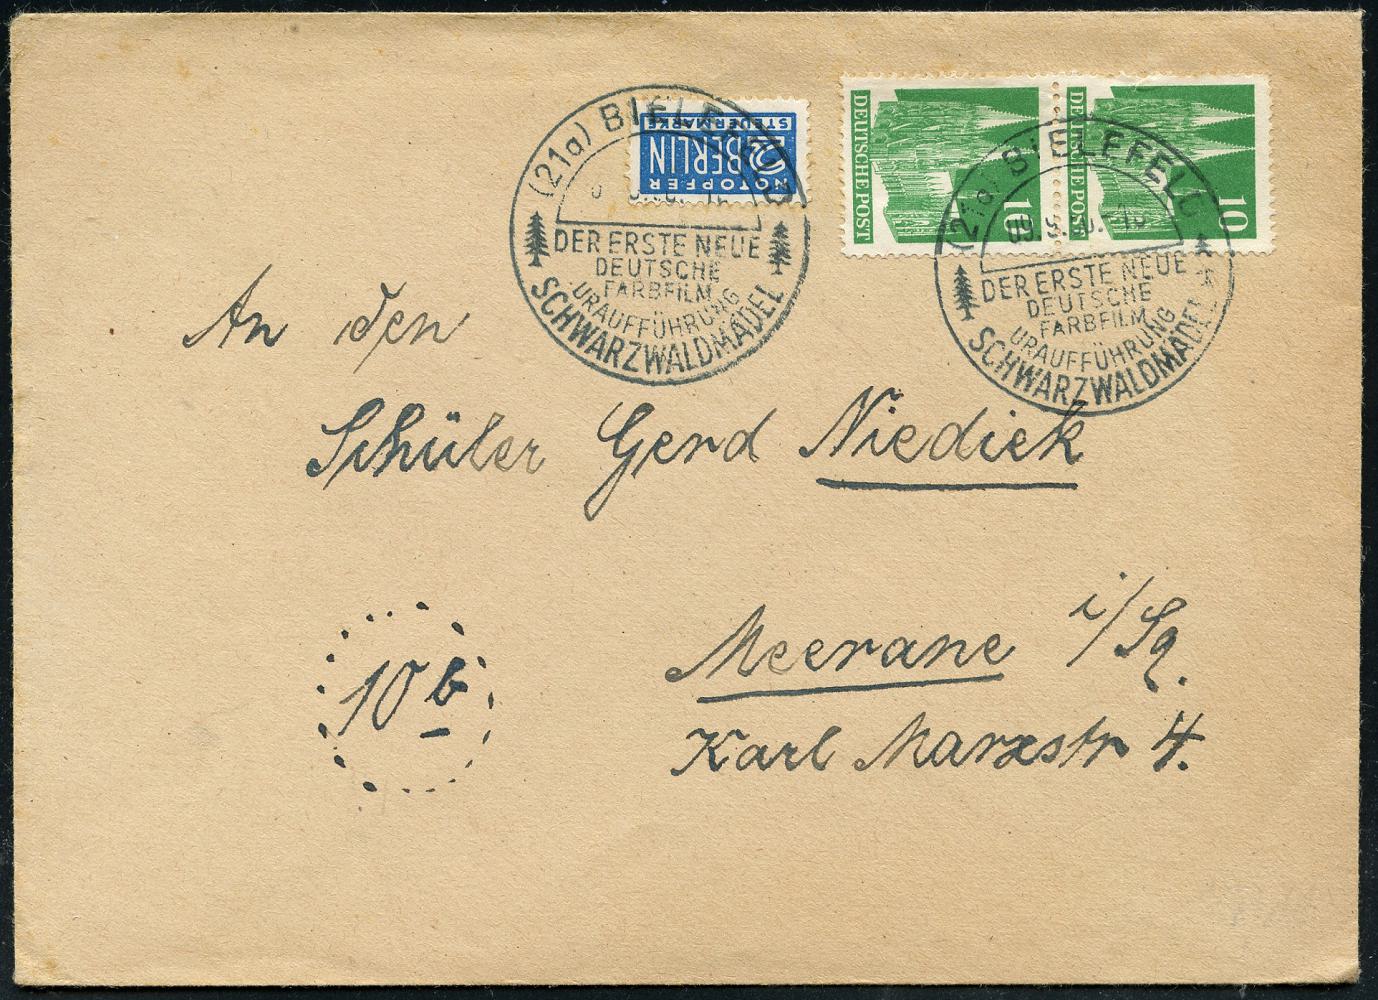 (21a) BIELEFELD
DER ERSTE NEUE
DEUTSCHE
FARBFILM
URAUFFÜHRUNG
SCHWARZWALDMÄDEL
NOTOPFER
2 BERLIN
STEUERMARKE
DEUTSCHE POST
10
DEUTSCHE POST
10
(21a) BIELEFELD
DER ERSTE NEUE
DEUTSCHE
FARBFILM
URAUFFÜHRUNG
SCHWARZWALDMÄDEL
An den
Schüler Gerd Niediek
Meerane i/Sa.
Karl Marxstr 4.
10b